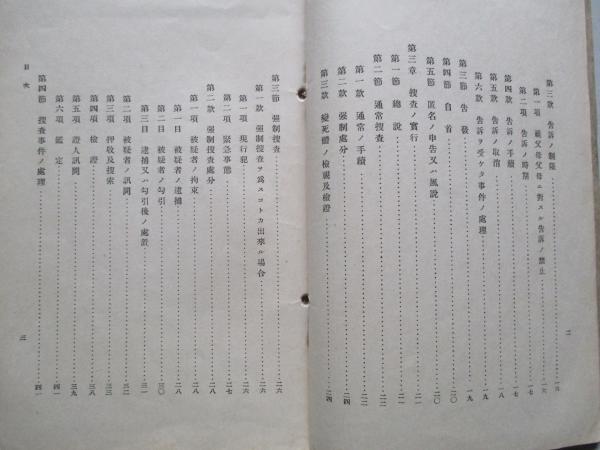 第三款 告訴ノ制限……一六
第一項 祖父母父母ニ對スル告訴ノ禁止……一六
第二項 告訴ノ時期……一七
第四款 告訴ノ手續……一七
第五款 告訴ノ取消……一八
第六款 告訴ヲ受ケタ事件ノ處理……一九
第三節 告發……一九
第四節 自首……二〇
第五節 匿名ノ申告又ハ風説……二〇
第三章 捜査ノ實行……二一
第一節 總說……二一
第二節 通常捜査……二二
第一款 通常ノ手續……二二
第二款 強制處分……二四
第三款 變死體ノ檢視及檢證……二四
二
第三節 強制捜査……二六
第一款 強制捜査ヲ爲スコトカ出來ル場合……二六
第一項 現行犯……二六
第二項 緊急事態……二七
第二款 強制捜査處分……二八
第一項 被疑者ノ拘束……二八
第一目 被疑者ノ逮捕……二八
第二目 被疑者ノ勾引……三〇
第三目 逮捕又ハ勾引後ノ處置……三一
第二項 被疑者ノ訊問……三二
第三項 押收及捜索……三三
第四項 檢證……三八
第五項 證人訊問……三九
第六項 鑑定……四一
第四節 捜査事件ノ處理……四一
目次
三